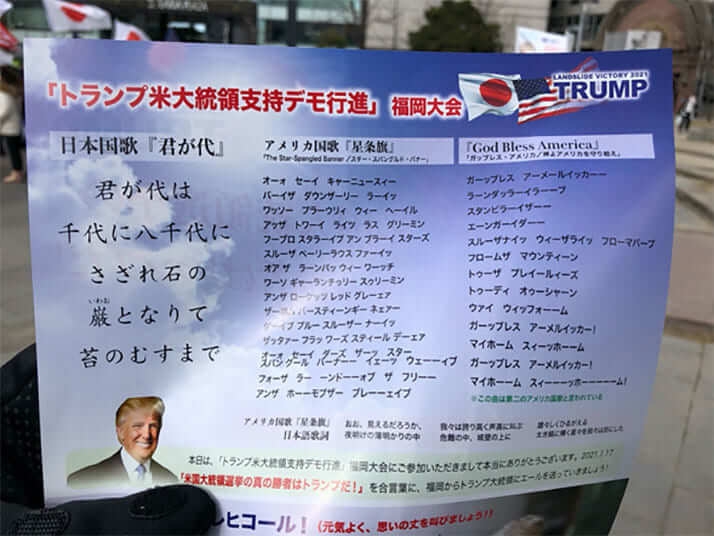 「トランプ米大統領支持デモ行進」 福岡大会
LANDSLIDE VICTORY 2021
TRUMP
日本国歌『君が代』
君が代は
千代に八千代に
さざれ石の
いわお
巌となりて
苔のむすまで
アメリカ国歌『星条旗』
「The Star-Spangled Banner／スター・スパングルド・バナー」
オーォ セーイ キャーニュースィー
バーイザ ダウンザーリー ラーイッ
ワッソー プラーウリィ ウィー ヘーイル
アッザ トワーイ ライツ ラス グリーミン
フーブロ スタライプ アン ブライ スターズ
スルーザ ペーリーラウス ファーイッ
オアザ ラーンパッ ウィー ワーッチ
ワーソ ギャーランチィリー スゥリーミン
アンザ ローケッツ レッド グレーェア
ザーボム バースティーンギー ネェアー
ゲーイブ プルー スルーザー ナーイッ
ザッタァー フラッ ワーズ スティール デーェア
オーォ セーイ ダーズ ザーッ スター
スパングール バーナー イェーッ ウェーーイブ
フォーザ ラー ーンドーーォブ ザ フリーー
アンザ ホーーモブザー ブレーーェイブ
『God Bless America』
「ガッブレス・アメリカ／神よアメリカを守り給え」
ガーッブレス アーメールイッカーー
ラーンダッラーイラーープ
スタンビラーイザーー
エーンガーイダーー
スルーザナイッ ウィーザライッ フローマバーブ
フロームザ マウンティーン
トゥーザ プレイールィーズ
トゥーディ オゥーシャーン
ウァイ ウィッフォーーム
ガーッブレス アーメルイッカー！
マイホーム スィーッホーーム
ガーッブレス アーメルイッカー！
マイホーム スィーーーッホーーーーーム！
※この曲は第二のアメリカ国歌と言われている
アメリカ国歌『星条旗』
日本語歌詞
おお、見えるだろうか、
夜明けの薄明かりの中
我々は誇り高く声高に叫ぶ
危難の中、城壁の上に
雄々しくひるがえる
本日は、「トランプ米大統領支持デモ行進」福岡大会にご参加いただきまして本当にありがとうございます。2021.1.17
「米国大統領選挙の真の勝者はトランプだ！」を合言葉に、福岡からトランプ大統領にエールを送っていきましょう！
レヒコール！（元気よく、思いの丈を叫びましょう!!